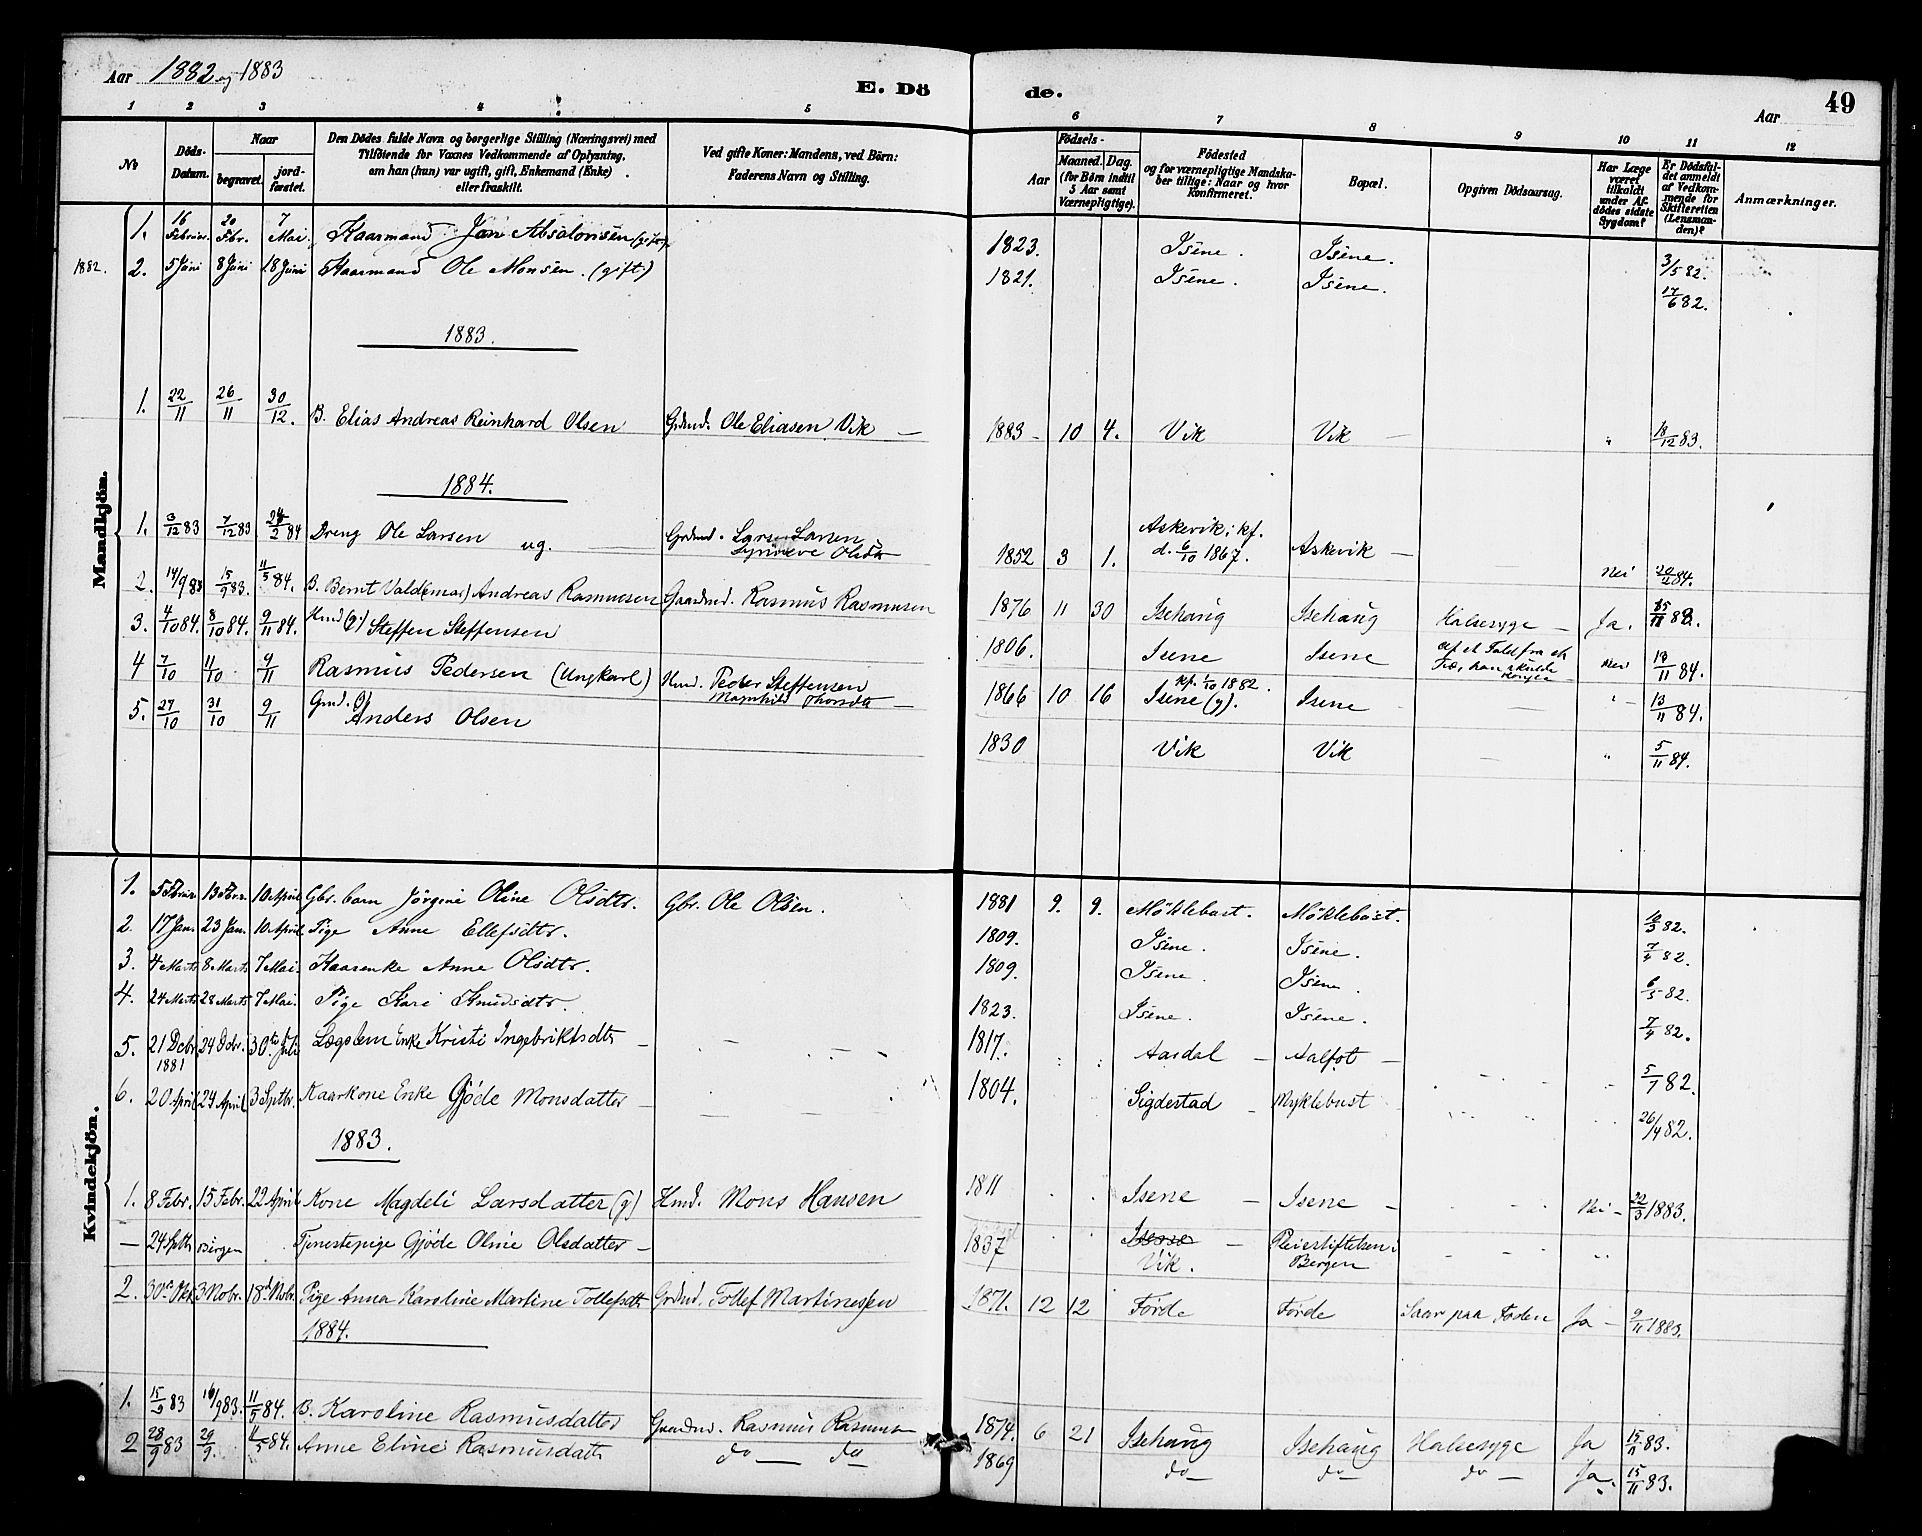 Aar 1882 og 1883
E. Dö de.
Aar
49
1 2 3 4 5 6 7 8 9 10 11 12
No
Döds-Datum.
Naar
begravet.
jord-fæstet.
Den Dödes fulde Navn og borgerlige Stilling (Næringsvei) med
Tilföiende for Voxnes Vedkommende af Oplysning,
om han (hun) var ugift, gift, Enkemand (Enke)
eller fraskilt.
Ved gifte Koner: Mandens, ved Börn:
Faderens Navn og Stilling.
Födsels-
Aar
Maaned. Dag.
(for Börn indtil
5 Aar samt
Værnepligtige).
Födested
og for værnepligtige Mandska-
ber tillige: Naar og hvor
Konfirmeret.
Bopæl.
Opgiven Dödsaarsag.
Har Læge
været
tilkaldt
under Af-
dödes sidste
Sygdom?
Er Dödsfal-
det anmeldt
af Vedkom-
mende for
Skifteretten
(Lensman-
den)?
Anmærkninger.
Mandkjön.
1. 16 Februar. 20 Fbr. 7 Mai. Kaarmand Jon Absalonsen (gift) 1823. Isene. Isene. 3/5 82.
1882. 2. 5 Juni 8 Juni 18 Juni Kaarmand Ole Monsen. (gift) 1821. Isene. Isene. 17/6 82.
1883.
1. 22/11 26/11 30/12. B. Elias Andreas Reinhard Olsen Grdmd. Ole Eliasen Vik — 1883 – 10 4. Vik Vik — " 18/12 83.
1884.
1. 3/12 83 7/12 83 24/2 84 Dreng Ole Larsen ug. — Grdmd. Lars Larsen
Synneve Olsdtr 1852 3 1. Askevik; kf.
d. 6/10 1867. Askevik — Nei 20/2 84.
2. 14/9 83 15/9 83. 11/5 84. B. Bernt Vald(emar) Andreas Rasmussen Gaardmd. Rasmus Rasmusen 1876 11 30 Isehaug Isehaug Halsesyge — Ja. 15/11 83.
3. 4/10 84. 8/10 84. 9/11 84. Hmd (g.) Steffen Steffensen 1806. Isene Isene Af et Fald fra et
Træ, han skulde
Nei 13/11 84.
4 7/10 11/10 9/11 Rasmus Pedersen (Ungkarl) Hmd. Peder Steffensen
Magnhild Thorsdtr — 1866 10 16 kf. 1/10 1882.
Isene (g). Isene — " 13/11 84.
5. 27/10 31/10 9/11 Gmd. g)
Anders Olsen 1830 Vik Vik — " 5/11 84.
Kvindekjön.
1. 5 Februar 13 Febr. 10 April Gbr. barn Jörgine Oline Olsdtr. Gbr. Ole Olsen. 1881 9. 9. Möklebust. Möklebust. 82.
2. 17 Jan. 23 Jan. 10 April. Pige Anne Ellefsdtr. 1809. Isene. Isene. 82.
3. 4 Marts 8 Marts 7 Mai. Kaarenke Anne Olsdtr. 1809. Isene. Isene. 6/5 82.
4. 24 Marts 28 Marts 7 Mai. Pige Kari Knudsdtr. 1823. Isene. Isene. 82.
5. 21 Dcbr
1881 24 Dcbr. 30te Juli Lægslem Enke Kristi Ingebriktsdtr — 1817. Aardal — Aalfot — 5/1 82.
6. 20 April 24 April 3 Septbr. Kaarkone Enke Gjöde Monsdatter — 1804. Sigdestad — Myklebust 26/4 82.
1883.
1. 8 Febr. 15 Febr. 22 April Kone Magdeli Larsdatter (g) Hmd. Mons Hansen 1811 Isene — Isene — Nei — 22/3 1883.
— 24 Septbr Bergen Tjenestepige Gjöde Oline Olsdatter — 1837 Isene —
Vik. Pleiestiftelsen i
Bergen
2. 30te Okt. 3 Nobr. 18de Nobr. Pige Anna Karoline Martine Tollefsdtr Grdmd. Tollef Martinessen 1871. 12 12 Förde Förde Saar paa Foden Ja — 9/11 1883.
1884.
1. 15/9 83 16/9 83. 11/5 84. B. Karoline Rasmusdatter Gaardmd. Rasmus Rasmusen 1874. 6 21 Isehaug Isehaug Halsesyge Ja 15/11 83.
2 28/9 83 29/9. 11/5 84. Anne Eline Rasmusdatt do — do 1869 do — do — do — Ja. 15/11 83.